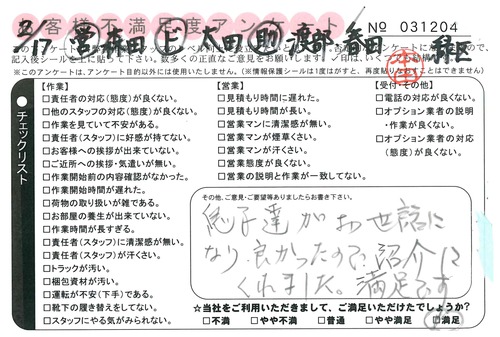 お客様不満足度アンケート
No 031204
2/17 営 森田 上 太田 助 渡部 香田
※このアンケートは、アンケート目的以外には使用いたしません。(※情報保護シールは1度はがすと、再度貼りなおすことはできません)
チェックリスト
【作業】
□責任者の対応(態度)が良くない。
□他のスタッフの対応(態度)が良くない。
□作業を見ていて不安がある。
□責任者(スタッフ)に好感が持てない。
□お客様への挨拶が出来ていない。
□ご近所への挨拶・気遣いが無い。
□作業開始前の内容確認がなかった。
□作業開始時間が遅れた。
□荷物の取り扱いが雑である。
□お部屋の養生が出来ていない。
□作業時間が長すぎる。
□責任者(スタッフ)に清潔感が無い。
□責任者(スタッフ)が汗くさい。
□トラックが汚い。
□梱包資材が汚い。
□運転が不安(下手)である。
□靴下の履き替えをしてない。
□スタッフにやる気がみられない。
【営業】
□見積もり時間に遅れた。
□見積もり時間が長い。
□営業マンに清潔感が無い。
□営業マンが煙草くさい。
□営業マンが汗くさい。
□営業態度が良くない。
□営業の説明と作業が一致してない。
【受付・その他】
□電話の対応が良くない。
□オプション業者の説明
・作業が良くない。
□オプション業者の対応
(態度)が良くない。
その他、ご意見・ご要望等ありましたらお書き下さい。
息子達がお世話に
なり良かったので紹介して
くれました。満足です
☆当社をご利用いただきまして、ご満足いただけたでしょうか?
□不満 □やや不満 □普通 □やや満足 □満足